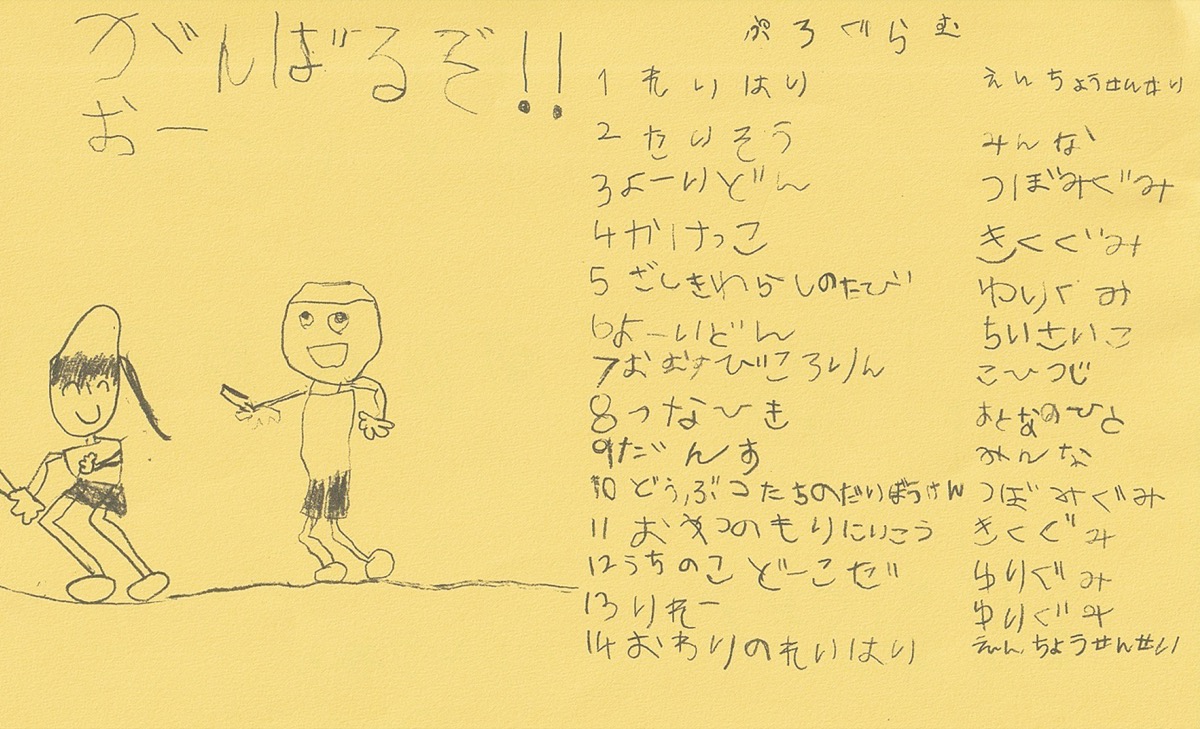 がんばるぞ!!
おー
ぷろぐらむ
1 れいはい えんちょうせんせい
2 たいそう みんな
3 よーいどん つぼみぐみ
4 かけっこ きくぐみ
5 ざしきわらしのたび ゆりぐみ
6 よーいどん ちいさいこ
7 おむすびころりん こひつじ
8 つなひき おとなのひと
9 だんす みんな
10 どうぶつたちのだいぼうけん つぼみぐみ
11 おやつのもりにいこう きくぐみ
12 うちのこどーこだ ゆりぐみ
13 りれー ゆりぐみ
14 おわりのれいはい えんちょうせんせい